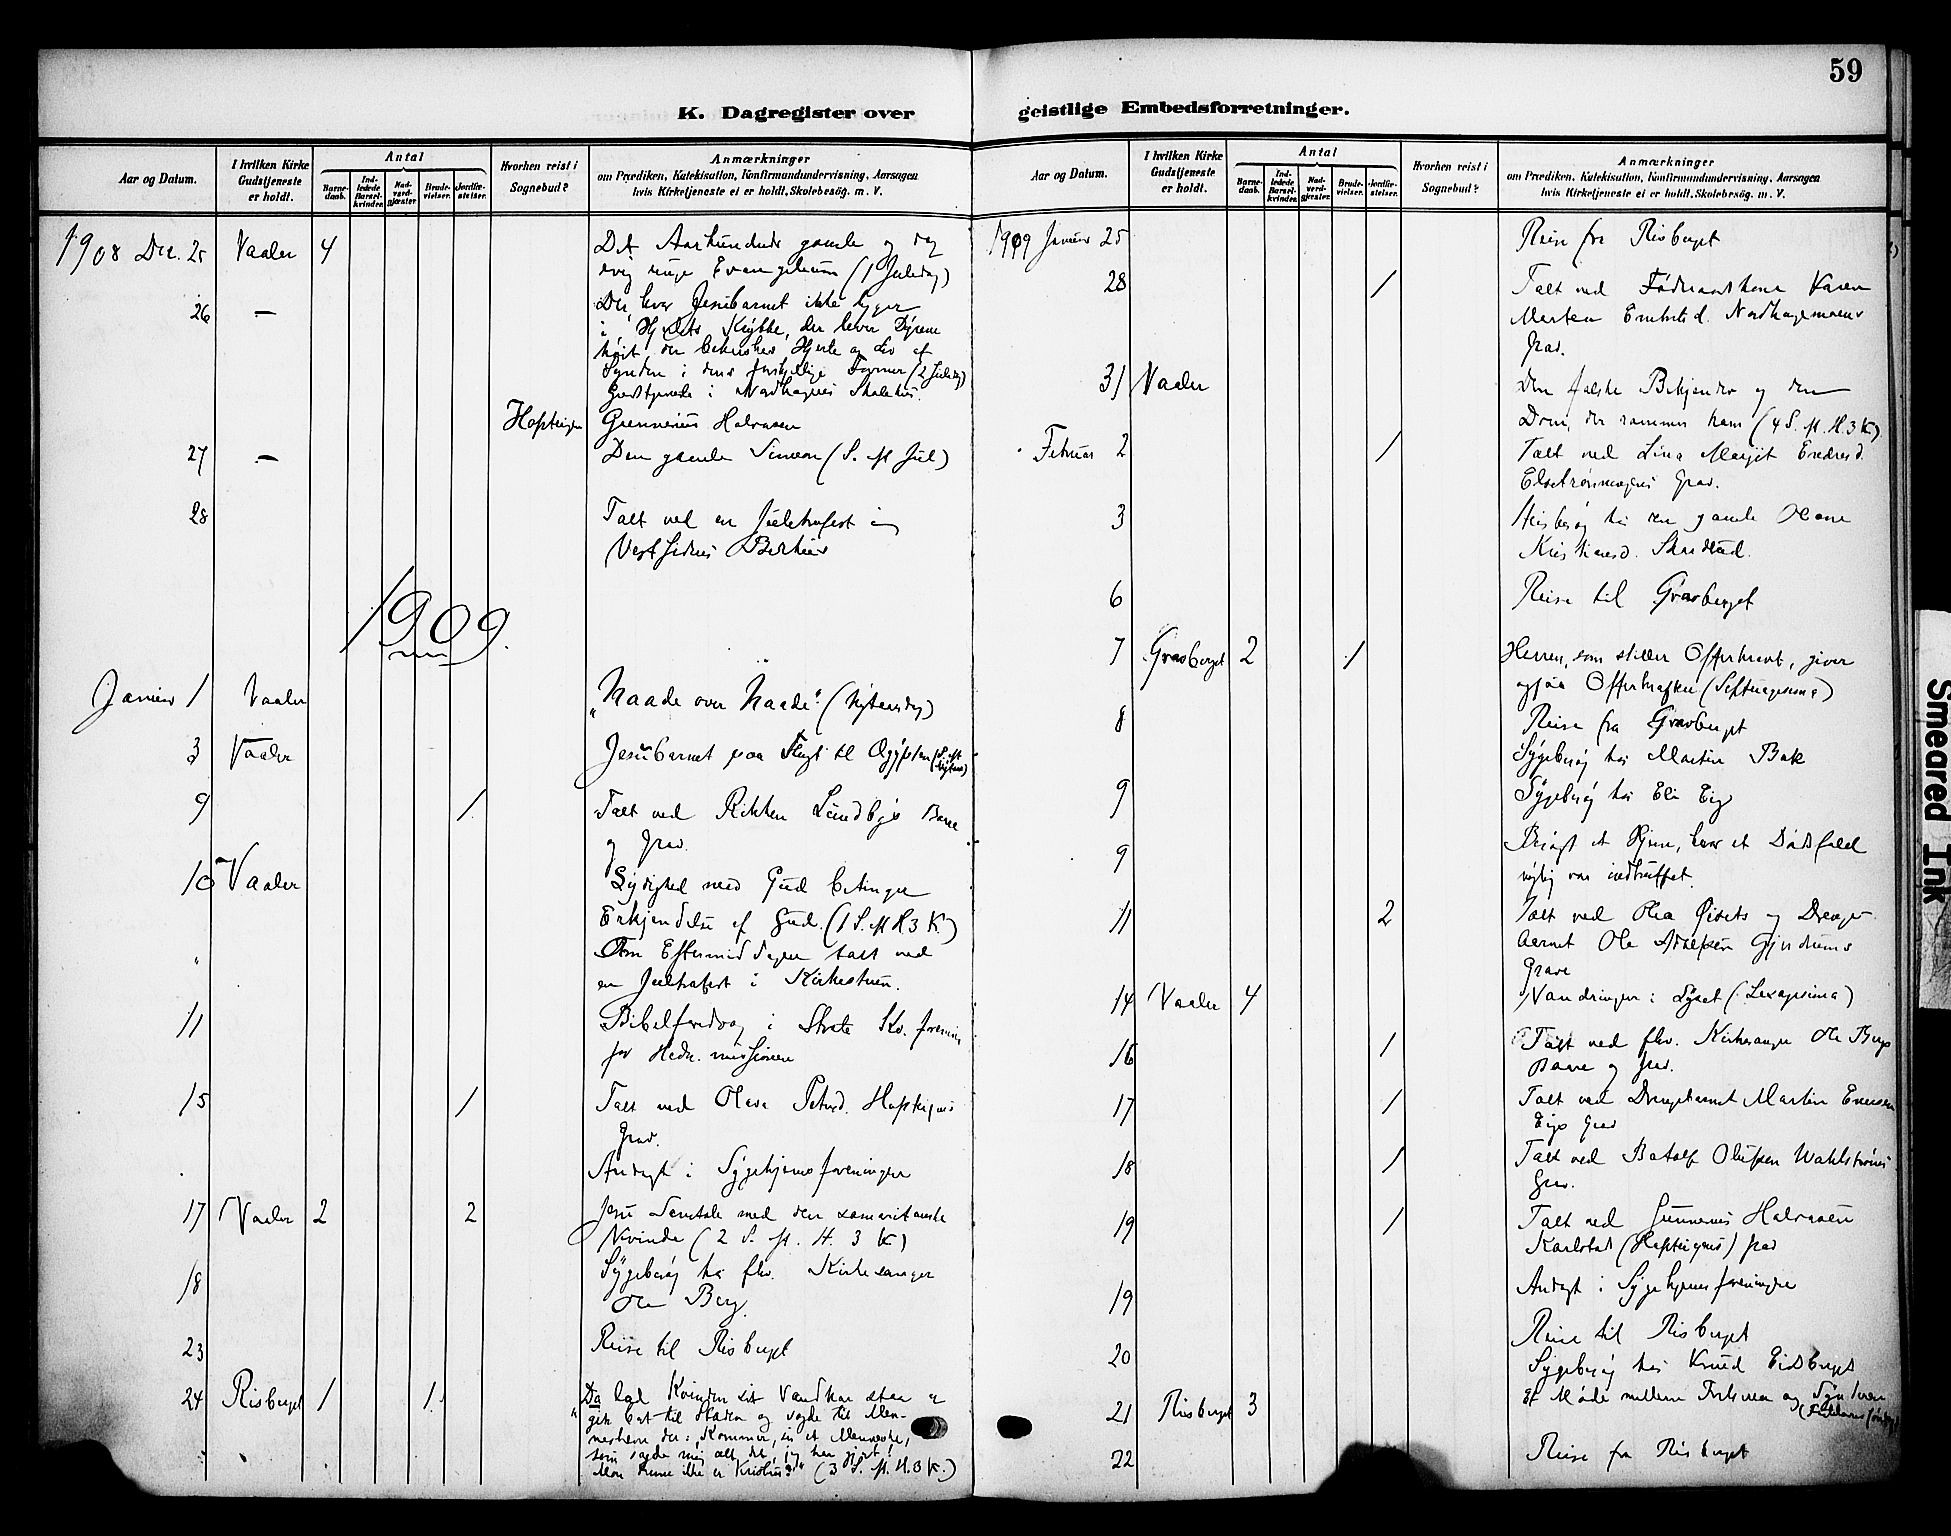 59
K. Dagregister over geistlige Embedsforretninger.
Aar og Datum.
I hvilken Kirke Gudstjeneste er holdt.
Antal
Barnedaab.
Indledede Barselkvinder.
Nadverdgjæster.
Brudevielser.
Jordfæstelser.
Hvorhen reist i Sognebud?
Anmærkninger
om Prædiken, Katekisation, Konfirmandundervisning, Aarsagen
hvis Kirketjeneste ei er holdt, Skolebesøg. m. V.
1908 Dec. 25 Vaaler 4 Det Aarhundrede gamle og dog
evig unge Evangelium (1 Juledag)
26 — Der, hvor Jesubarnet ikke ligger
i Hjertets Krybbe, der lever Dyrene
høit, der behersker Hjerte og Liv af
Synden i dens forskjellige Former (2 Juledag)
Gudstjeneste i Nordhagens Skolehus.
Gunnerius Halvorsen
27 — Den gamle Simeon (S. ft Jul)
28 Talt ved en Juletrefest i
Vestsidens Bedehus
1909.
Januar 1 Vaaler "Naade over Naade" (Nytaarsdag)
3 Vaaler Jesubarnet paa Flugt til Ægypten (S. ft Nytaar)
9 1 Talt ved Rikken Lundbys Baare
og Grav.
10 Vaaler Lydighed med Gud betinger
Erkjendelse af Gud. (1 S. ft H3K)
" Om Eftermiddagen talt ved
en Juletrefest i Kirkestuen.
11 Bibelforedrag i Kv. forening
for Hedn. missionen
15 1 Talt ved Olava Petersd.
Grav.
Andagt i Sygehjemsforeningen
17 Vaaler 2 2 Jesu Samtale med den samaritanske
Kvinde (2 S. ft. H. 3 K)
18 Sygebesøg hos fhv. Kirkesanger
Ole Berg.
23 Reise til Risberget
24 Risberget 1 1 Da lod Kvinden sit Vandkar staa og
gik bort til Staden og sagde til Men-
neskene der: "Kommer, se et Menneske,
som sagde mig alt det, jeg har gjort!
Mon denne ikke er Kristus?" (3 S. ft. H. 3 K.)
Aar og Datum.
I hvilken Kirke Gudstjeneste er holdt.
Antal
Barnedaab.
Indledede Barselkvinder.
Nadverdgjæster.
Brudevielser.
Jordfæstelser.
Hvorhen reist i Sognebud?
Anmærkninger
om Prædiken, Katekisation, Konfirmandundervisning, Aarsagen
hvis Kirketjeneste ei er holdt, Skolebesøg. m. V.
1909 Januar 25 Reise fra Risberget
28 1 Talt ved Karen
Marten Nordhagemoens
Grav.
31 Vaaler Den falske Bekjender og den
Dom, der rammer ham (4 S. ft. H. 3 K).
Februar 2 1 Talt ved Lina Margit
Grav.
3 Husbesøg hos den gamle Olava
Kristiansd.
6 Reise til Gravberget
7 Gravberget 2 1 Herren, som stiller Offerkravet, giver
ogsaa Offerkraften (Septuagesima)
8 Reise fra Gravberget
Sygebesøg hos Martin Bak
9 Sygebesøg hos Eli Eig
9 Besøgt et Hjem, hvor et Dødsfald
nylig var indtruffet.
11 2 Talt ved Olea og Drenge-
barnet Ole
Grave
14 Vaaler 4 Vandringen i Lyset (Sexagesima)
16 1 Talt ved fhv. Kirkesanger Ole Bergs
Baare og Grav.
17 1 Talt ved Drengebarnet Martin
Eigs Grav
18 1 Talt ved Olufsen
Grav.
19 1 Talt ved Gunnerius Halvorsen
Karlstad Grav
19 Andagt i Sygehjemsforeningen
20 Reise til Risberget
Sygebesøg hos Knud Eidsberget
21 Risberget 3 Et Møde mellem Frelseren og Synderen
22 Reise fra Risberget
Smeared Ink